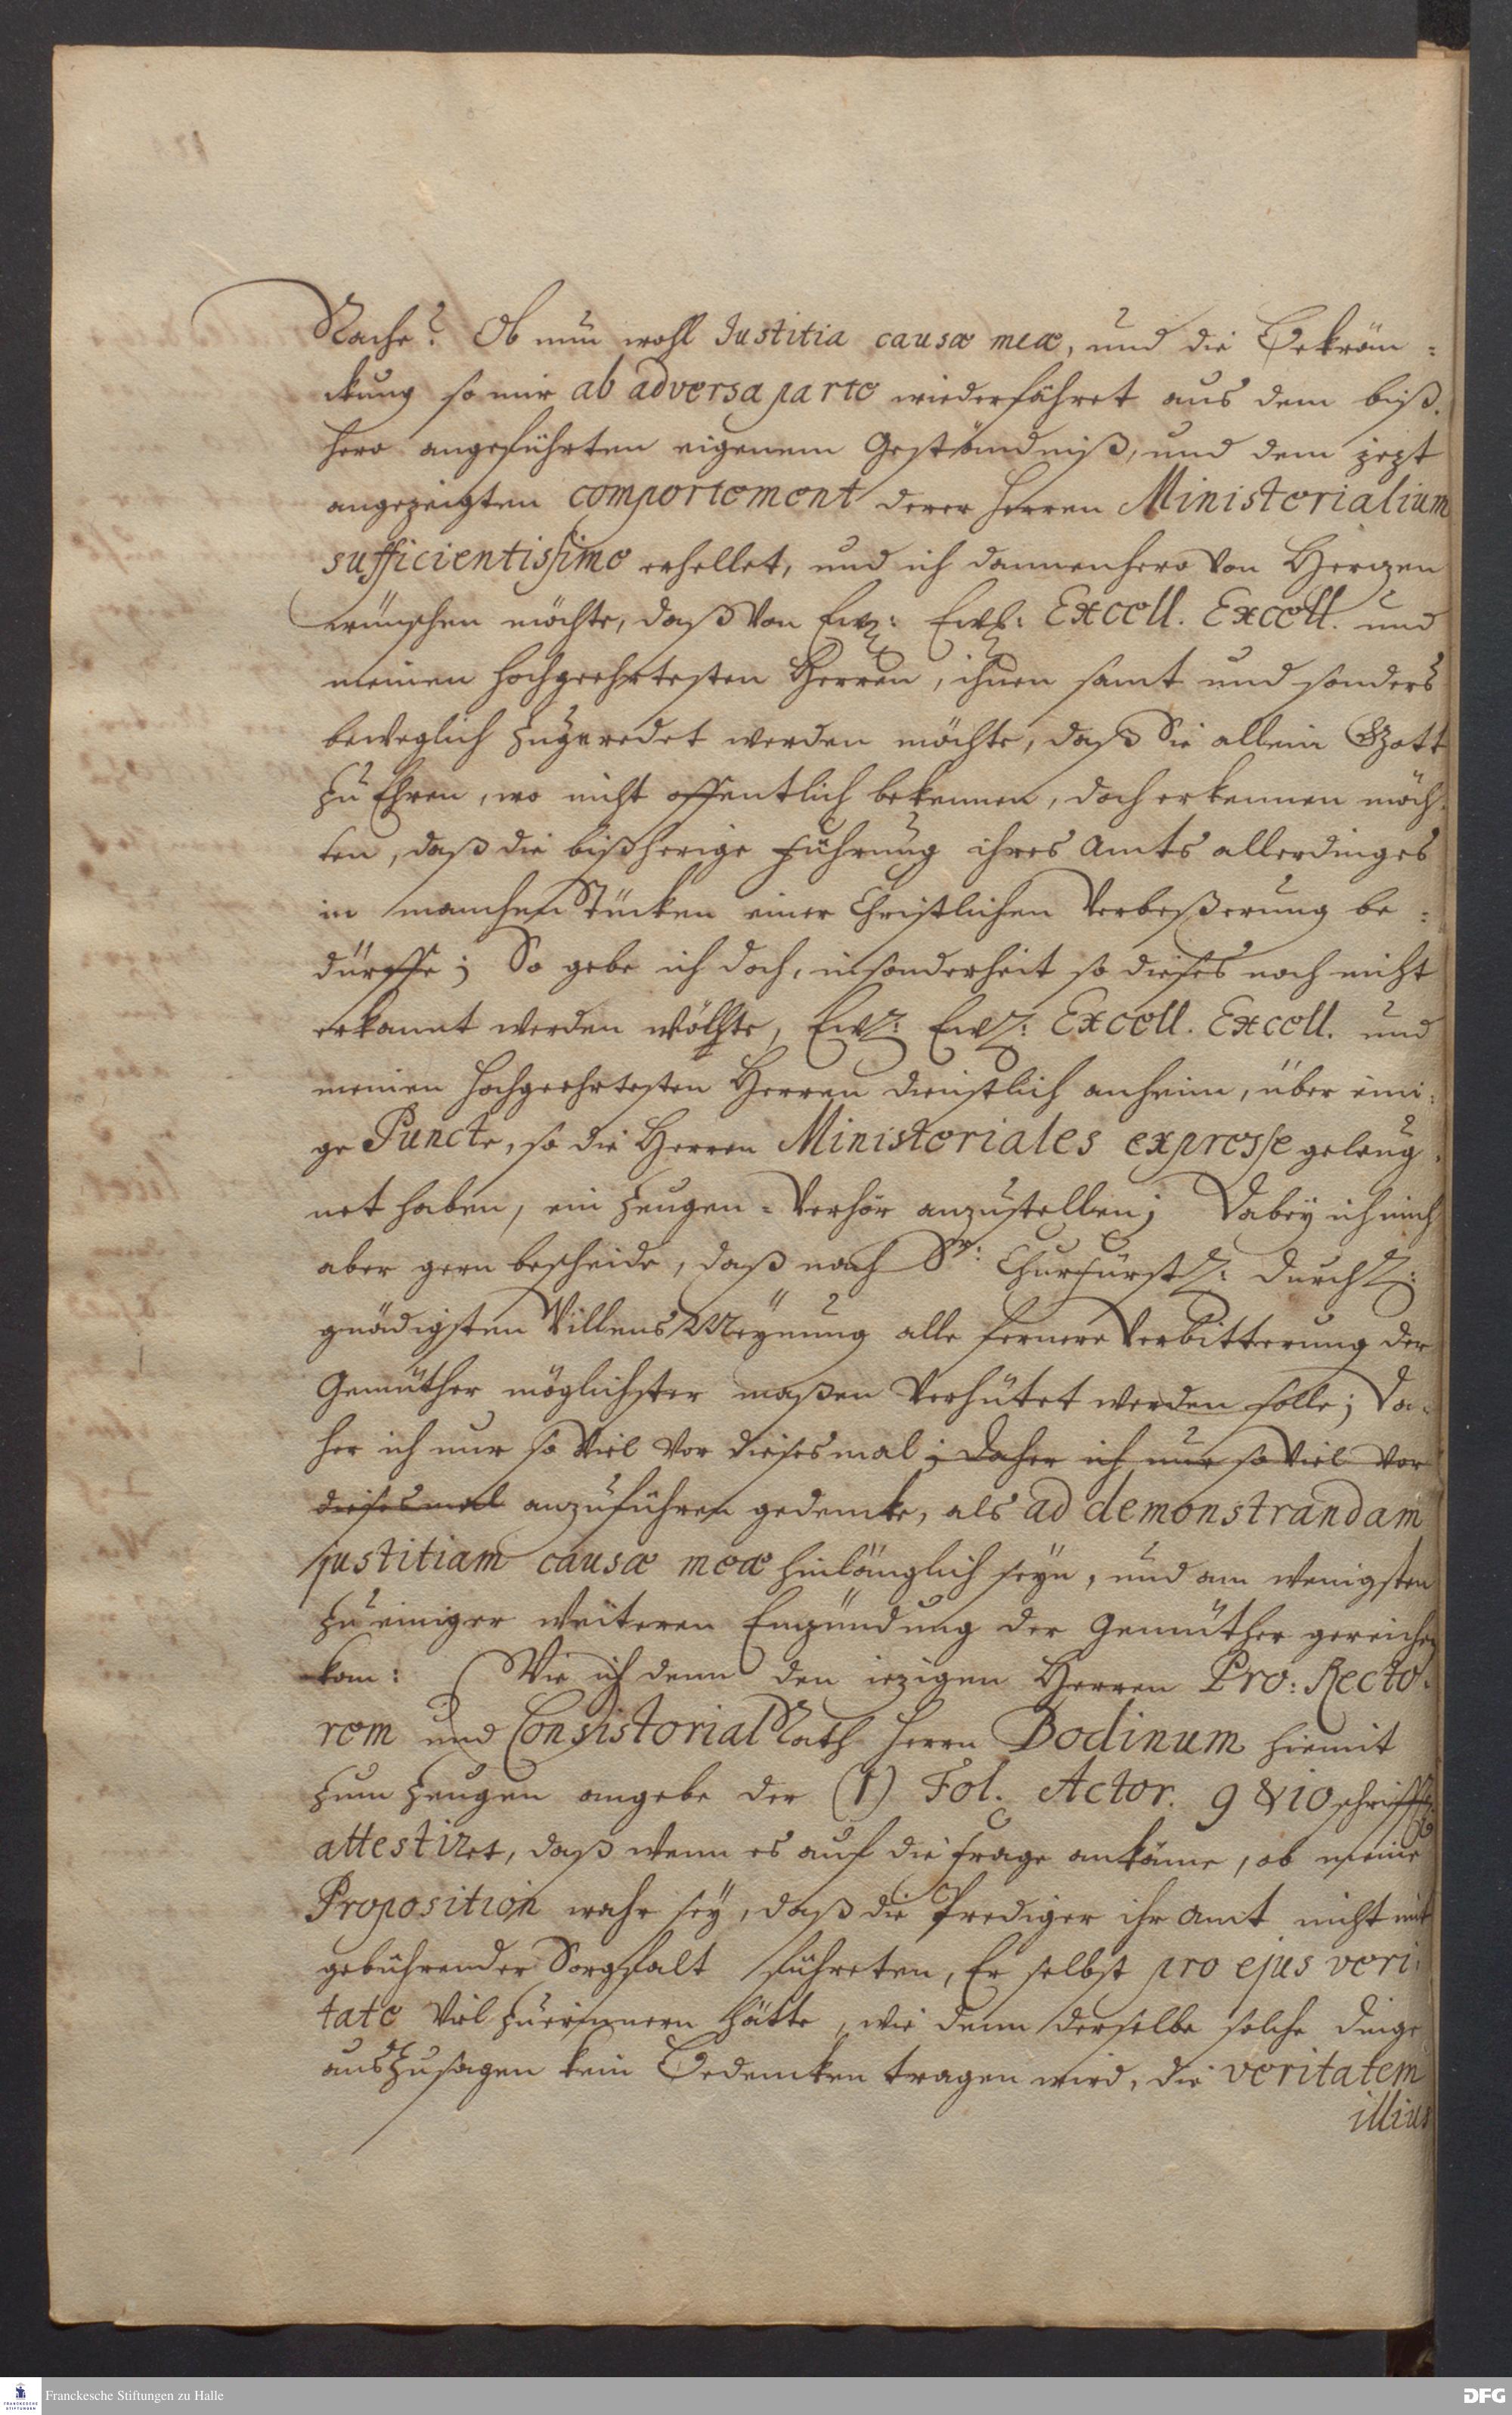 Rache? Ob nun wohl Justitia causæ meæ, und die Bekrän=
ckung so mir ab adversa parte wiederfähret aus dem biß-
hero angeführten eigenem Geständniß, und dem jezt
angezeigten comportement derer Herren Ministerialium
sufficientissime erhellet, und ich dannenhero von Herzen
wünschen möchte, daß von Ew: Ew: Excell. Excell. und
meinen Hochgeehrtesten Herren, ihnen samt und sonders
beweglich zugeredet werden möchte, daß Sie allein Gott
zu Ehren, wo nicht offentlich bekennen, doch erkennen möch-
ten, daß die bißherige Führung ihres Amts allerdinges
in manchen Stücken einer Christlichen Verbeßerung be=
dürffe; So gebe ich doch, insonderheit so dieses noch nicht
erkannt werden wolte, Ew: Ew: Excell. Excell. und
meinen Hochgeehrtesten Herren dienstlich anheim, über eini-
ge Puncte, so die Herren Ministeriales expresse geleug-
net haben, ein Zeugen=Verhör anzustellen; Dabey ich mich
aber gern bescheide, daß nach Sr: Churfürstl: Durchl:
gnädigsten Willens Meÿnung alle fernere Verbitterung der
Gemüther möglichster maßen verhütet werden solle; Da-
her ich nur so viel vor diesesmal ; Daher ich nur so viel vor
diesesmal anzuführen gedencke, als ad demonstrandam
justitiam causæ meæ hinlänglich seyn, und am wenigsten
zu einiger weiteren Enzündung der Gemüther gereichen
kan: Wie ich denn den iezigen Herren Pro: Recto-
rem und Consistorial Rath Herrn Bodinum hiemit
zum Zeugen angebe der (1) Fol. Actor. 9 & 10 schrifftl.
attestiret, daß wenn es auf die Frage ankäme, ob meine
Proposition wahr seÿ, daß die Prediger ihr Amt nicht mit
gebührender Sorgfalt führeten, Er selbst pro ejus veri-
tate viel zuerinnern hätte, wie denn derselbe solche Dinge
auszusagen kein Bedencken tragen wird, die veritatem
illius
Franckesche Stiftungen zu Halle
DFG